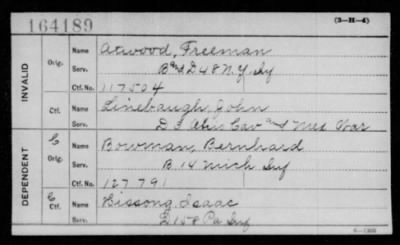 164189
(3-H-4)
INVALID
Orig.
Name Atwood, Freeman
Serv. B and D 48 N.Y. Inf
Ctf. No. 117504
Ctf.
Name Linebaugh, John
Serv. D 3 Cav and Mex War
DEPENDENT
C
Orig.
Name Bowman, Bernhard
Serv. B. 14 Mich Inf
Ctf. No. 127791
C
Ctf.
Name Hissong, Isaac
Serv. D 158 Pa Inf